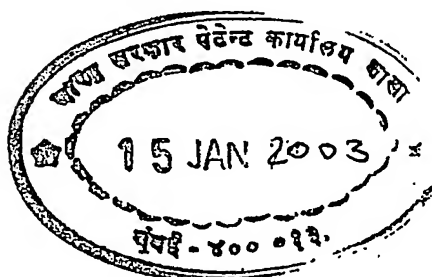 भारत सरकार पेटेन्ट कार्यालय शाखा
15 JAN 2003
मुंबई - ४०० ०१३.